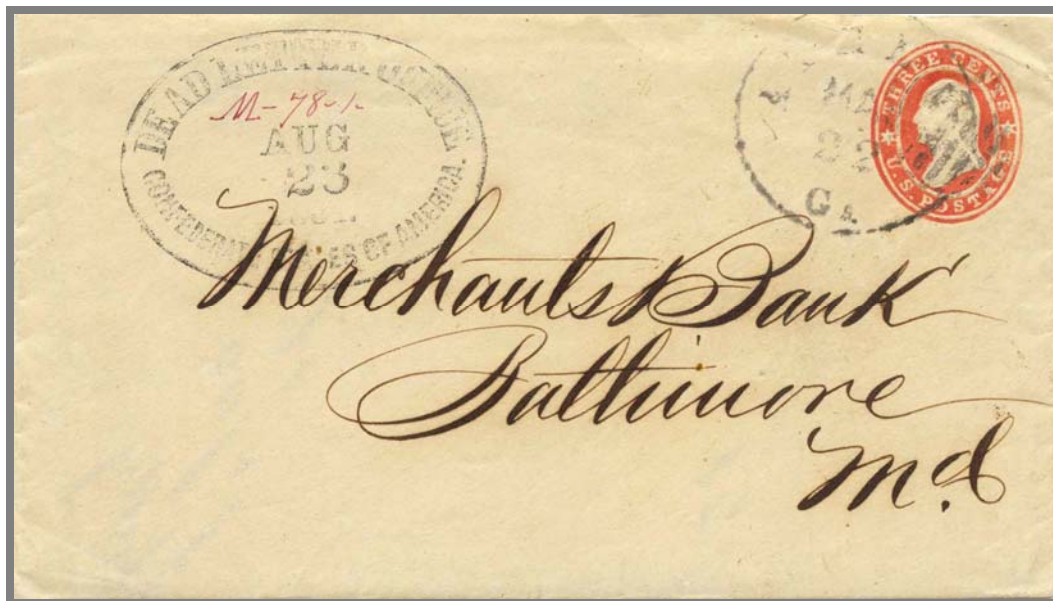 DEAD LETTER OFFICE
M-781-
AUG
23
CONFEDERATE STATES OF AMERICA.
22
Ga.
THREE CENTS
U.S. POSTAGE
Merchants Bank
Baltimore
Md